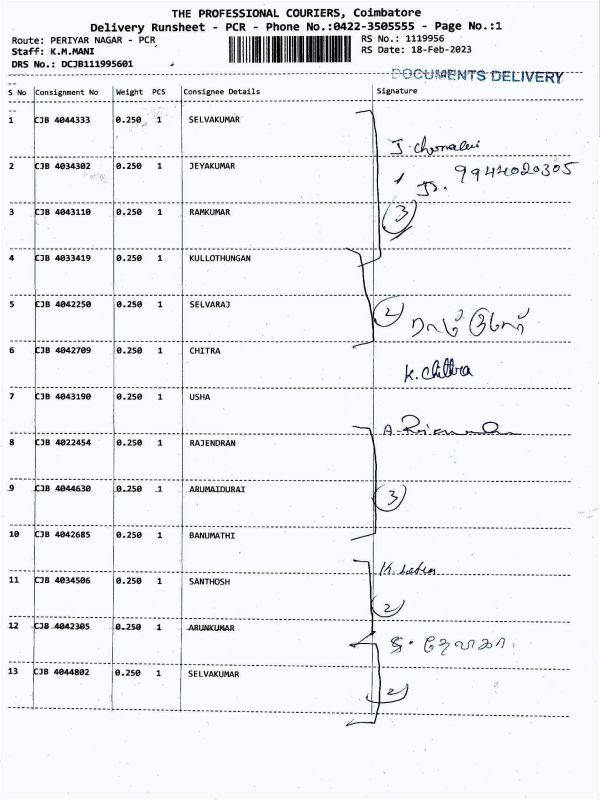 THE PROFESSIONAL COURIERS, Coimbatore
Delivery Runsheet - PCR - Phone No.:0422-3505555 - Page No.:1
Route: PERIYAR NAGAR - PCR
RS No.: 1119956
Staff: K.M.MANI
RS Date: 18-Feb-2023
DRS No.: DCJB111995601
DOCUMENTS DELIVERY
S No Consignment No Weight PCS Consignee Details Signature
1 CJB 4044333 0.250 1 SELVAKUMAR
2 CJB 4034302 0.250 1 JEYAKUMAR 9944020305
3 CJB 4043110 0.250 1 RAMKUMAR 3
4 CJB 4033419 0.250 1 KULLOTHUNGAN
5 CJB 4042250 0.250 1 SELVARAJ 2
6 CJB 4042709 0.250 1 CHITRA K. Chitra
7 CJB 4043190 0.250 1 USHA
8 CJB 4022454 0.250 1 RAJENDRAN
9 CJB 4044630 0.250 1 ARUMAIDURAI 3
10 CJB 4042685 0.250 1 BANUMATHI
11 CJB 4034506 0.250 1 SANTHOSH 2
12 CJB 4042305 0.250 1 ARUNKUMAR
13 CJB 4044802 0.250 1 SELVAKUMAR 2